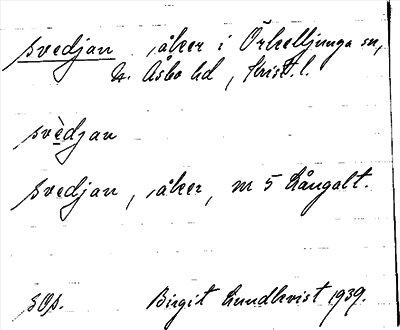 svedjan åker i Örkelljunga sn,
N. Åsbo hd, Krist. l.
svèdjan
svedjan, åker, m 5 Långalt.
sOp. Birgit Lundkvist 1939.